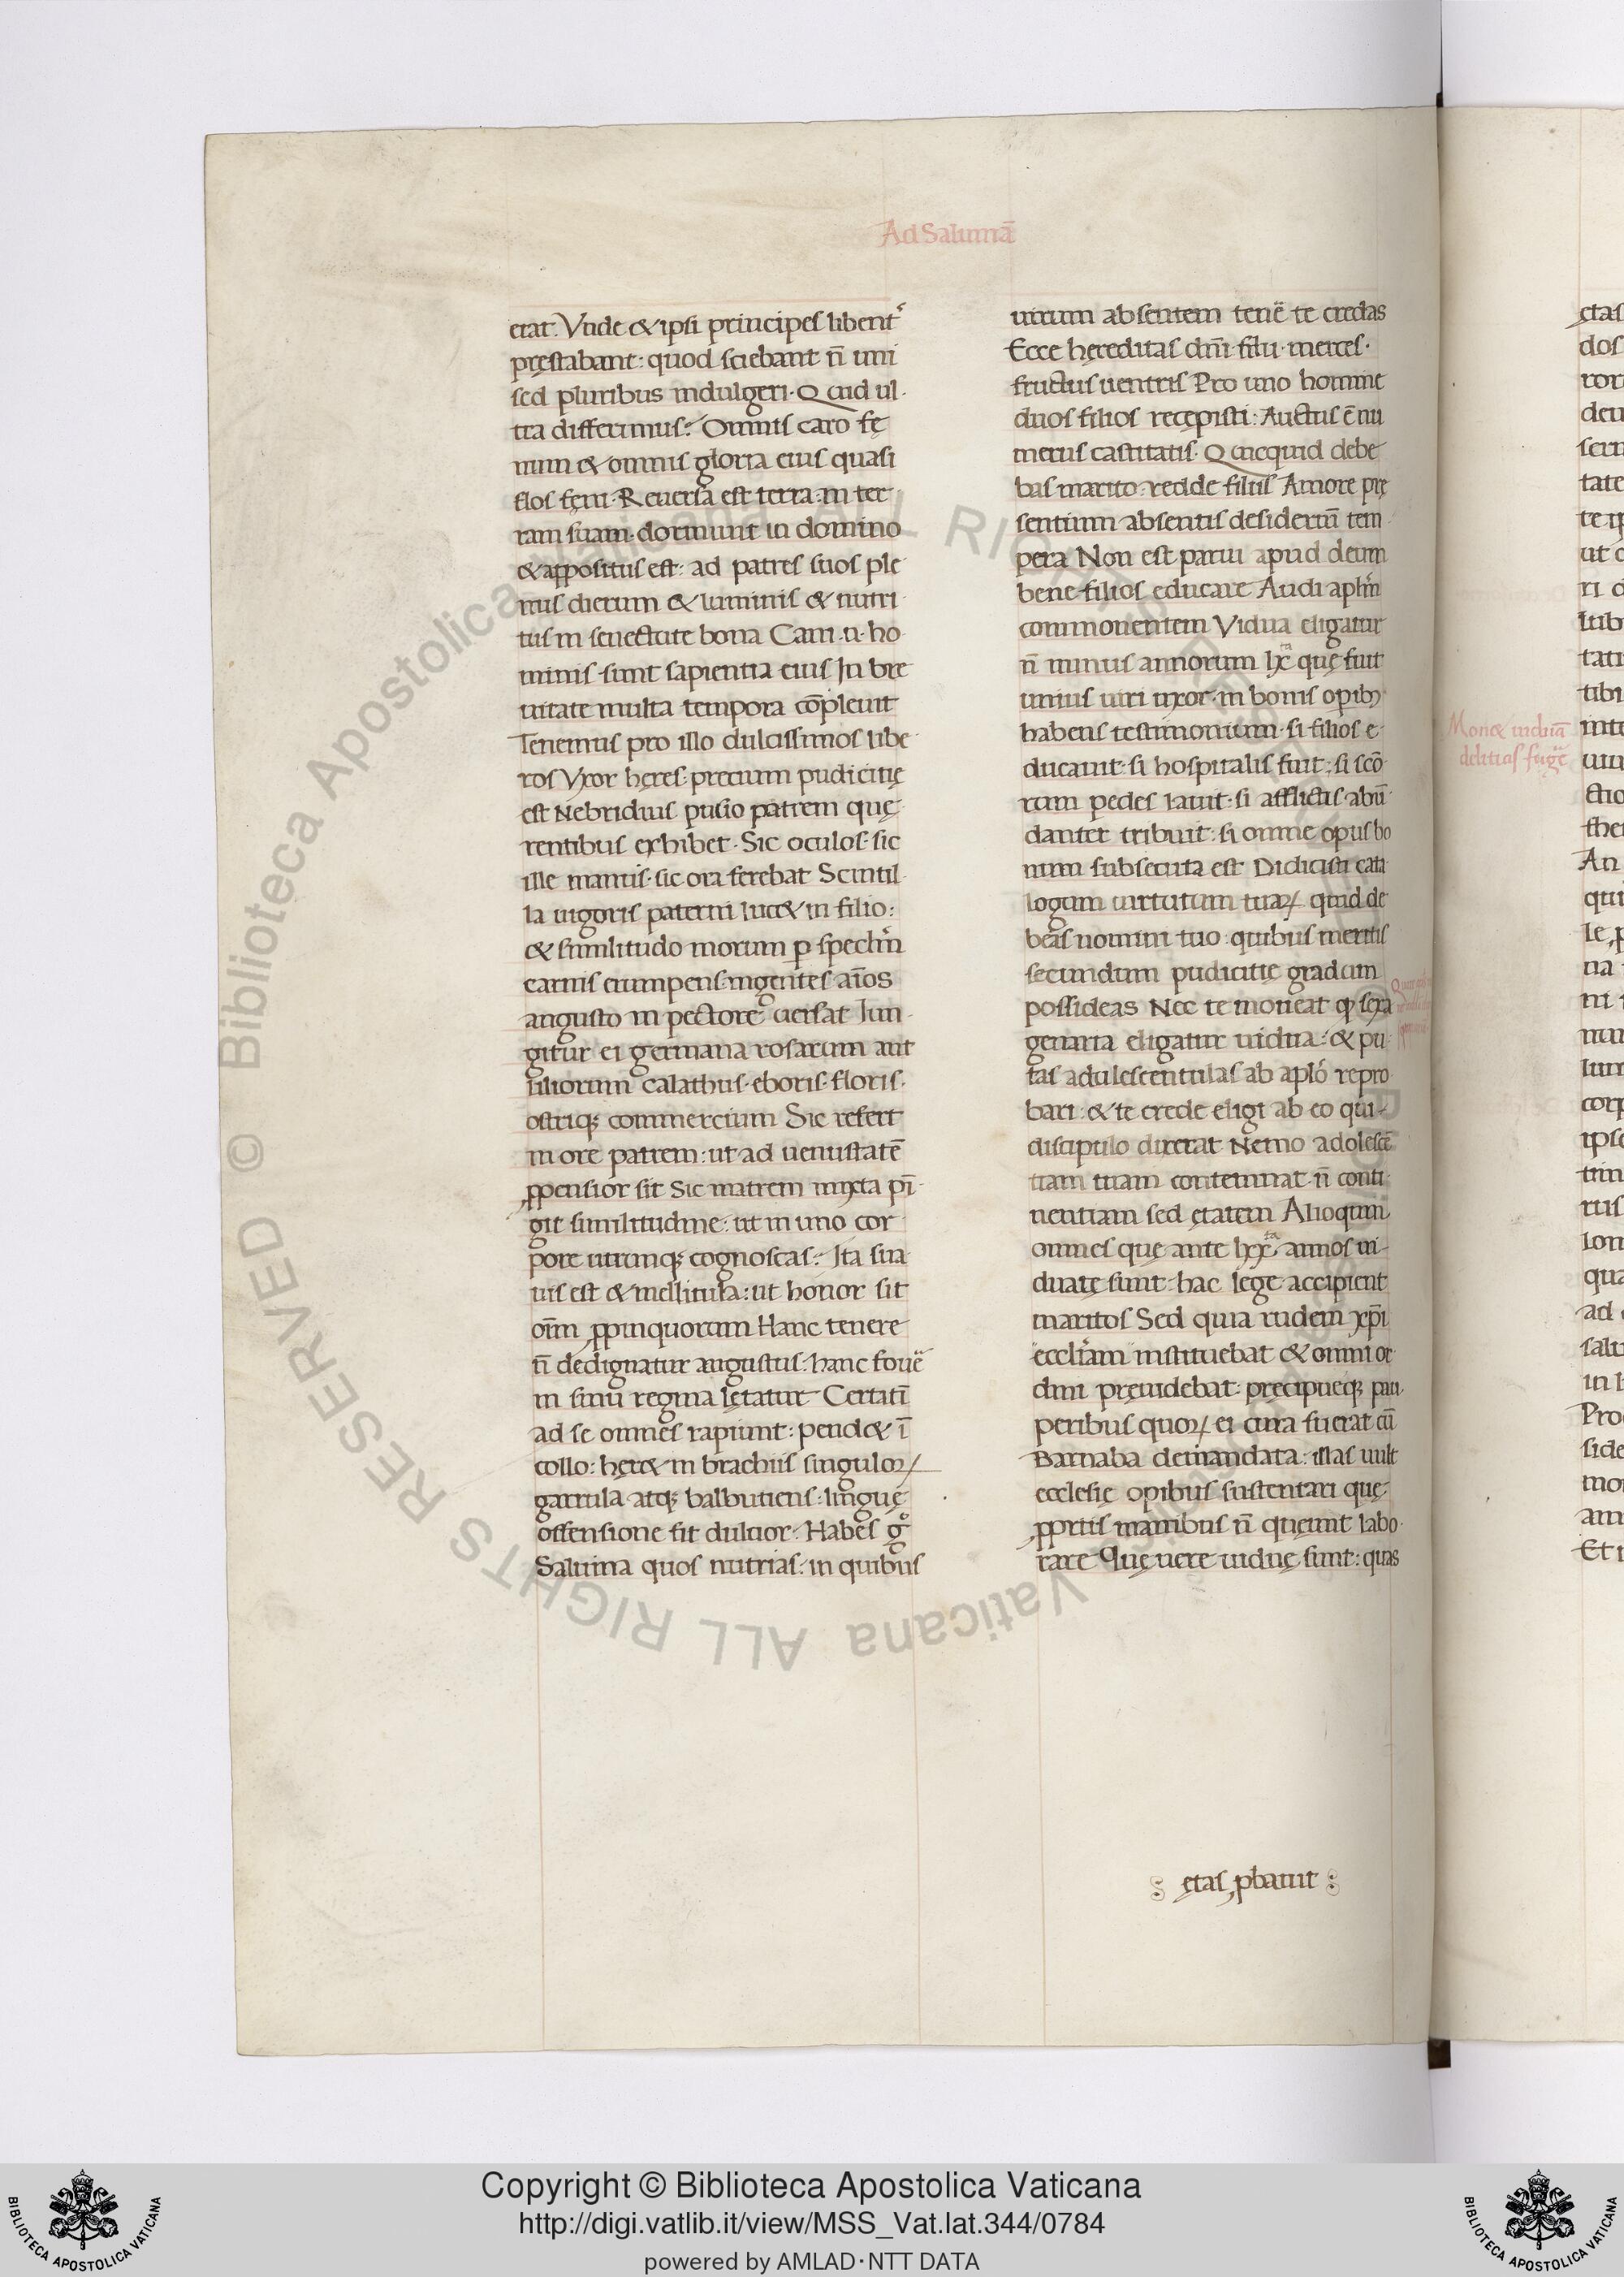 Ad Saluinā
erat. Vnde & ipsi principes libent᷑
pręstabant: quod sciebant n̄ uni
sed pluribus indulgeri. Quid ul
tra differimus? Omnis caro fę
num & omnis gloria eius quasi
flos fęni. Reuersa est terra in ter
ram suam. dormiuit in domino
& appositus est: ad patres suos ple
nus dierum & luminis & nutri
tus in senectute bona Cani .n. ho
minis sunt sapientia eius In bre
uitate multa tempora cōpleuit
Tenemus pro illo dulcissimos libe
ros Vxor hęres precium pudicitię
est Nebridius pusio patrem quę
rentibus exhibet. Sic oculos. sic
ille manus. sic ora ferebat Scintil
la uigoris paterni luc& in filio:
& similitudo morum p̱ speclm̄
carnis erumpens. ingentes aīos
angusto in pectore uersat Iun
gitur ei germana rosarum aut
liliorum calathus. eboris. floris.
ostriq; commercium Sic refert
in ore patrem: ut ad uenustatē
ꝓpensior sit Sic matrem mixta pī
git similitudine: ut in uno cor
pore utrunq; cognoscas. Ita sua
uis est & mellitula: ut honor sit
oīm ꝓpinquorum Hanc tenere
n̄ dedignatur augustus. hanc fouē
in sinu regina lętatur Certatī
ad se omnes rapiunt: pend& ī
collo: hęr& in brachiis singuloꝝ
garrula atq; balbutiens. linguę
offensione fit dulcior. Habes gͦ
Saluina quos nutrias. in quibus
uirum absentem tenē te credas
Ecce hęreditas dn̄i. filii. merces.
fructus uentris Pro uno homine
duos filios recępisti: Auctus ē nu
merus castitatis. Quicquid debe
bas marito. redde filiis Amore prę
sentium absentis desideriū tem
pera Non est parui apud deum
bene filios educare Audi aplm̄
commonentem Vidua eligatur
n̄ minus annorum lx quę fuit
unius uiri uxor. in bonis opibꝫ
habens testimonium. si filios e
ducauit. si hospitalis fuit. si scō
rum pedes lauit. si afflictis abū
danter tribuit: si omne opus bo
num subsecuta est Didicisti cata
logum uirtutum tuaꝝ quid de
beas nomini tuo quibus meritis
secundum pudicitię gradum
possideas Nec te moueat ꝙ sexa
genaria eligatur uidua: & pu
tas adulescentulas ab aplō repro
bari: & te crede eligi ab eo qui
discipulo dixerat Nemo adolescē
tiam tuam contemnat. n̄ conti
nentiam sed ętatem Alioquin
omnes quę ante lx annos ui
duatę sunt. hac lege accipient
maritos Sed quia rudem xp̄i
eccl̄iam instituebat & omni or
dini pręuidebat: pręcipueq; pau
peribus quoꝝ ei cura fuerat cū
Barnaba demandata: illas uult
ecclesię opibus sustentari quę
ꝓpriis manibus n̄ queunt labo
rare Quę uere uiduę sunt: quas
ętas ꝓbauit
Mon& uiduā
delitias fugē
Copyright © Biblioteca Apostolica Vaticana
http://digi.vatlib.it/view/MSS_Vat.lat.344/0784
powered by AMLAD·NTT DATA